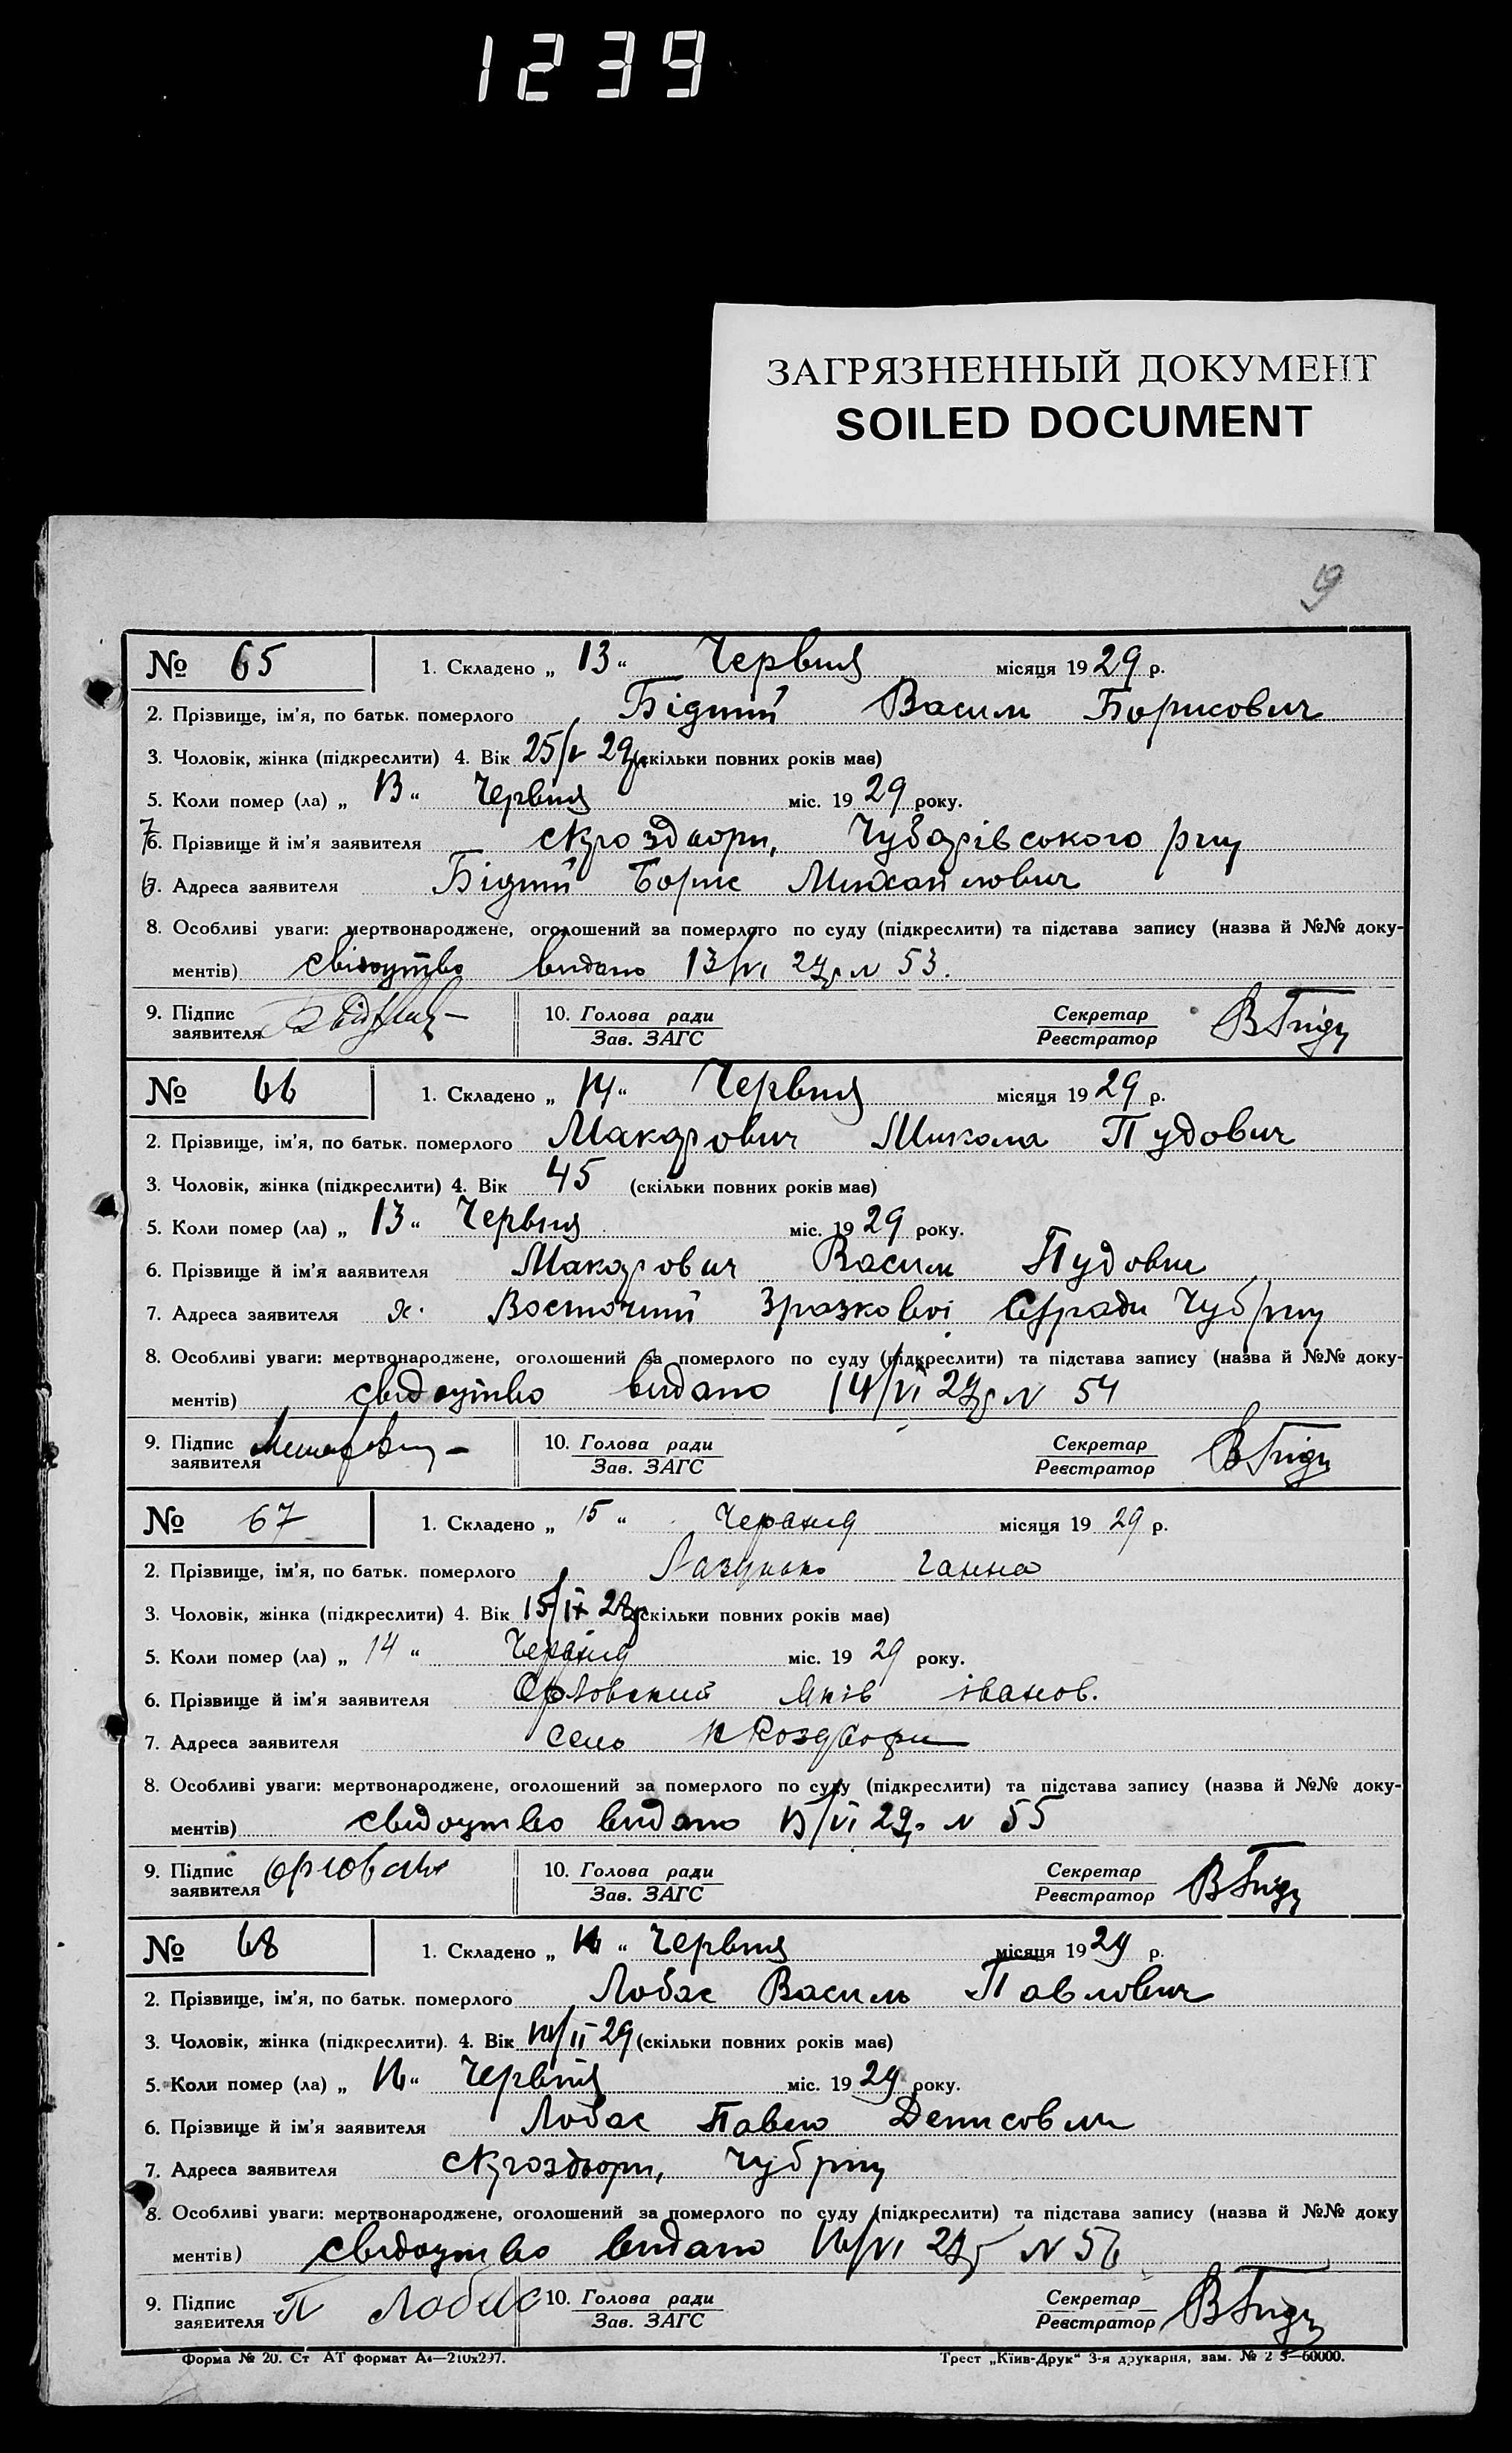 1239
ЗАГРЯЗНЕННЫЙ ДОКУМЕНТ
SOILED DOCUMENT
9
№ 65 1. Складено „ 13 “ Червня місяця 1929 р.
2. Прізвище, ім'я, по батьк. померлого Бідний Василь Борисович
3. Чоловік, жінка (підкреслити) 4. Вік 25/V 29р (скільки повних років має)
5. Коли помер (ла) „ 13 “ Червня міс. 1929 року.
7 6. Прізвище й ім'я заявителя Чубарівського р-ну
6 7. Адреса заявителя Бідний Борис Михайлович
8. Особливі уваги: мертвонароджене, оголошений за померлого по суду (підкреслити) та підстава запису (назва й №№ доку-
ментів) свідоцтво видано 13/VI 29р N 53.
9. Підпис заявителя 10. Голова ради Зав. ЗАГС Секретар Реєстратор
№ 66 1. Складено „ 14 “ Червня місяця 1929 р.
2. Прізвище, ім'я, по батьк. померлого Макарович Микола Пудович
3. Чоловік, жінка (підкреслити) 4. Вік 45 (скільки повних років має)
5. Коли помер (ла) „ 13 “ Червня міс. 1929 року.
6. Прізвище й ім'я заявителя Макарович Василь Пудович
7. Адреса заявителя х. Восточний Зразкової С/ради Чуб р-ну
8. Особливі уваги: мертвонароджене, оголошений за померлого по суду (підкреслити) та підстава запису (назва й №№ доку-
ментів) свідоцтво видано 14/VI 29р N 54
9. Підпис заявителя 10. Голова ради Зав. ЗАГС Секретар Реєстратор
№ 67 1. Складено „ 15 “ Червня місяця 1929 р.
2. Прізвище, ім'я, по батьк. померлого Ганна
3. Чоловік, жінка (підкреслити) 4. Вік 15/IX 28р (скільки повних років має)
5. Коли помер (ла) „ 14 “ Червня міс. 1929 року.
6. Прізвище й ім'я заявителя Орловский Яків іванов.
7. Адреса заявителя село
8. Особливі уваги: мертвонароджене, оголошений за померлого по суду (підкреслити) та підстава запису (назва й №№ доку-
ментів) свідоцтво видано 15/VI 29р N 55
9. Підпис заявителя 10. Голова ради Зав. ЗАГС Секретар Реєстратор
№ 68 1. Складено „ 16 “ Червня місяця 1929 р.
2. Прізвище, ім'я, по батьк. померлого Лобас Василь Павлович
3. Чоловік, жінка (підкреслити). 4. Вік /II 29 (скільки повних років має)
5. Коли помер (ла) „ 16 “ Червня міс. 1929 року.
6. Прізвище й ім'я заявителя Лобас Павло Денисович
7. Адреса заявителя Чуб р-ну
8. Особливі уваги: мертвонароджене, оголошений за померлого по суду (підкреслити) та підстава запису (назва й №№ доку
ментів) свідоцтво видано 16/VI 29р N 56
9. Підпис заявителя П Лобас 10. Голова ради Зав. ЗАГС Секретар Реєстратор
Форма № 20. Ст АТ формат А4—210х297. Трест „Київ-Друк“ 3-я друкарня, зам. № 2 5—60000.